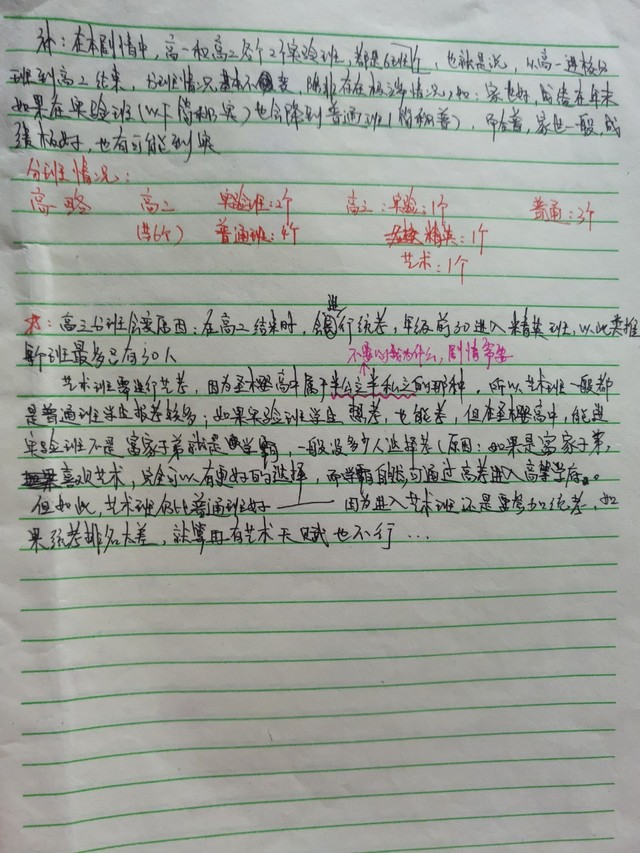 补：在本剧情中，高一和高二各个2个实验班，都是，也就是说，从高一进校分
班到高二结束，分班情况基本不变，除非存在极端情况，如：家世好，成绩在年末
如果在实验班（以下简称实）也会降到普通班（简称普），而在普，家世一般，成
绩极好，也有可能到实
分班情况：
高略 高二 实验班：2个 高三：实验：1个 普通：3个
（共6个） 普通班：4个 精英：1个
艺术：1个
求：高三分班会变原因：在高二结束时，会进行统考，年级前30进入精英班，以此类推
每个班最多只有30人 不要问我为什么，剧情需要
艺术班要进行艺考，因为圣樱高中属于半公立半私立的那种，所以艺术班一般都
是普通班学生报考较多；如果实验班学生想考，也能考，但在圣樱高中，能进
实验班不是富家子弟就是学霸，一般没多少人选择考（原因：如果是富家子弟，
喜欢艺术，完全可以有更好的选择，而学霸自然可通过高考进入高等学府。
但如此，艺术班仍比普通班好——因为进入艺术班还是要参加统考，如
果统考排名太差，就算有艺术天赋也不行…